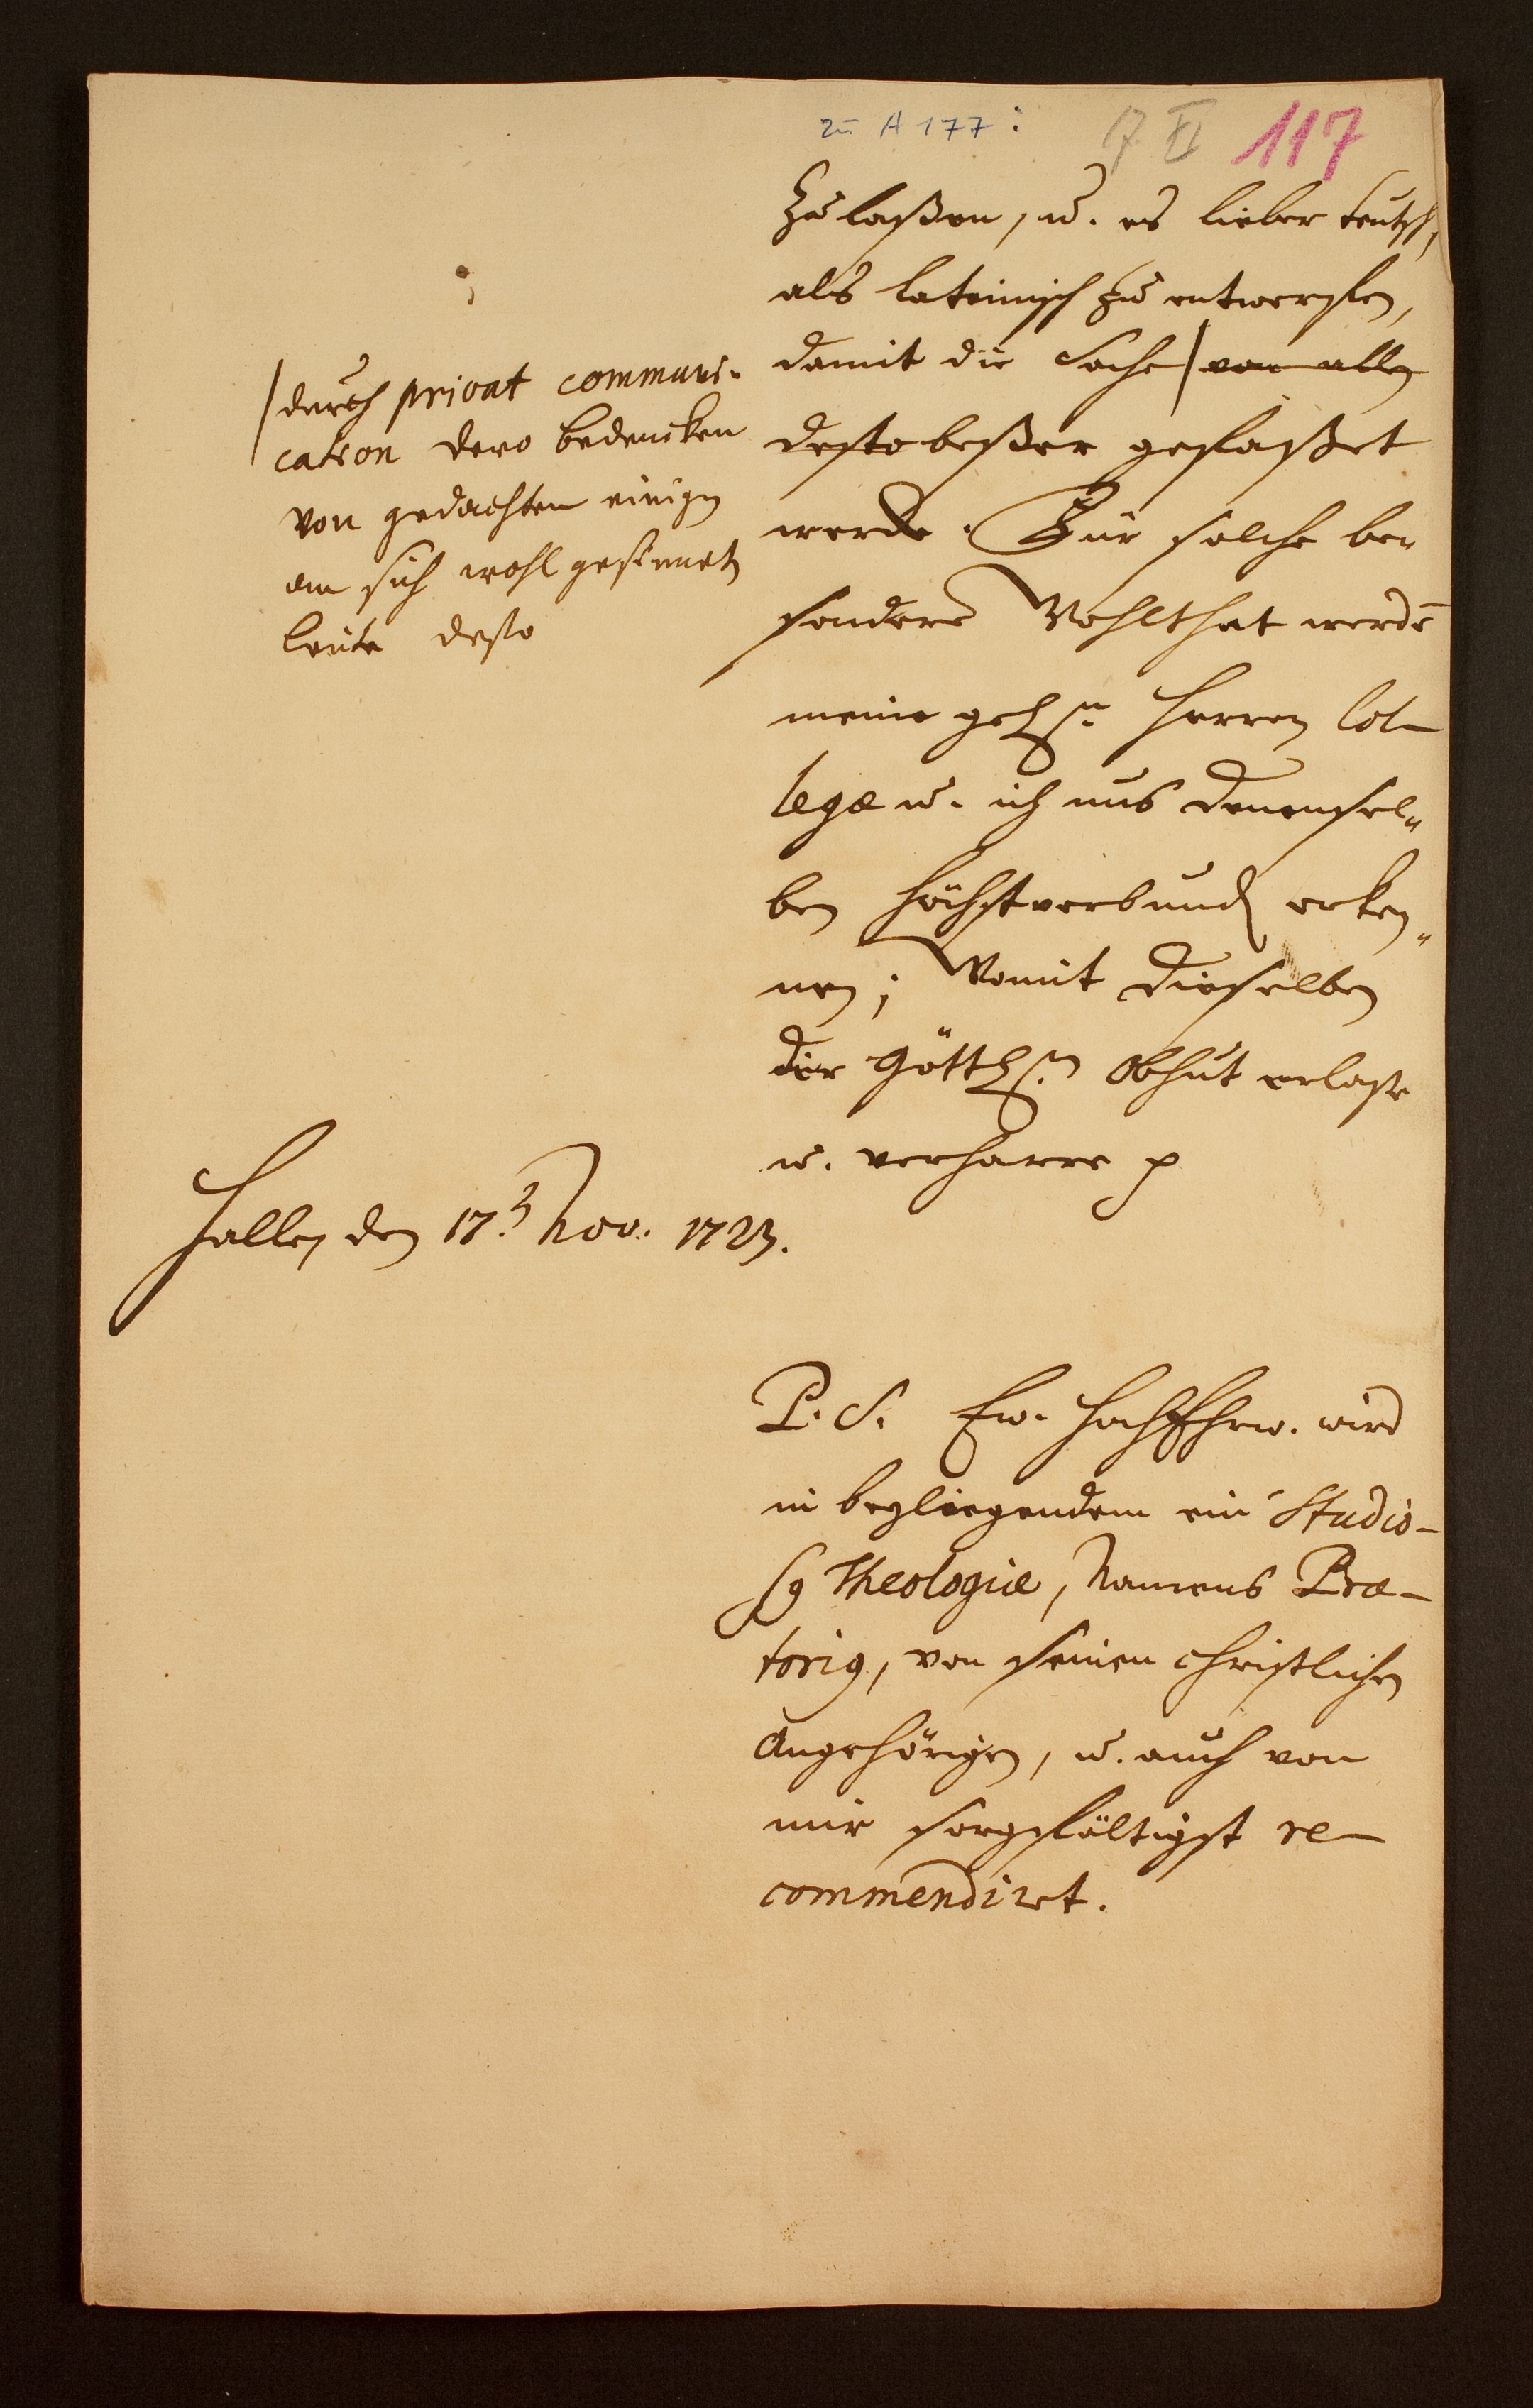 zu A 177:
17 XI 117
zu laßen, u. es lieber teutsch,
als lateinisch zu entwerffen,
damit die Sache / von allen
desto beßer gefaßet
werde. Für solche be-
sondere Wohlthat werdē
meine gel. Herren Col-
legæ u. ich uns denensel-
ben höchstverbund. erken-
nen; Womit dieselben
der Göttl. Obhut erlaße
u. verharre p
/ durch privat communi-
cation dero bedencken
von gedachten einigen
an sich wohl gesinneten
leute desto
Halle, den 17. Nov. 1723.
P. S. Ew. HochEhrw. wird
in beyliegendem ein Studio-
sq Theologiæ, Namens Præ-
toriq, von seinen christlichen
Angehörigen, u. auch von
mir sorgfältigst re-
commendiret.